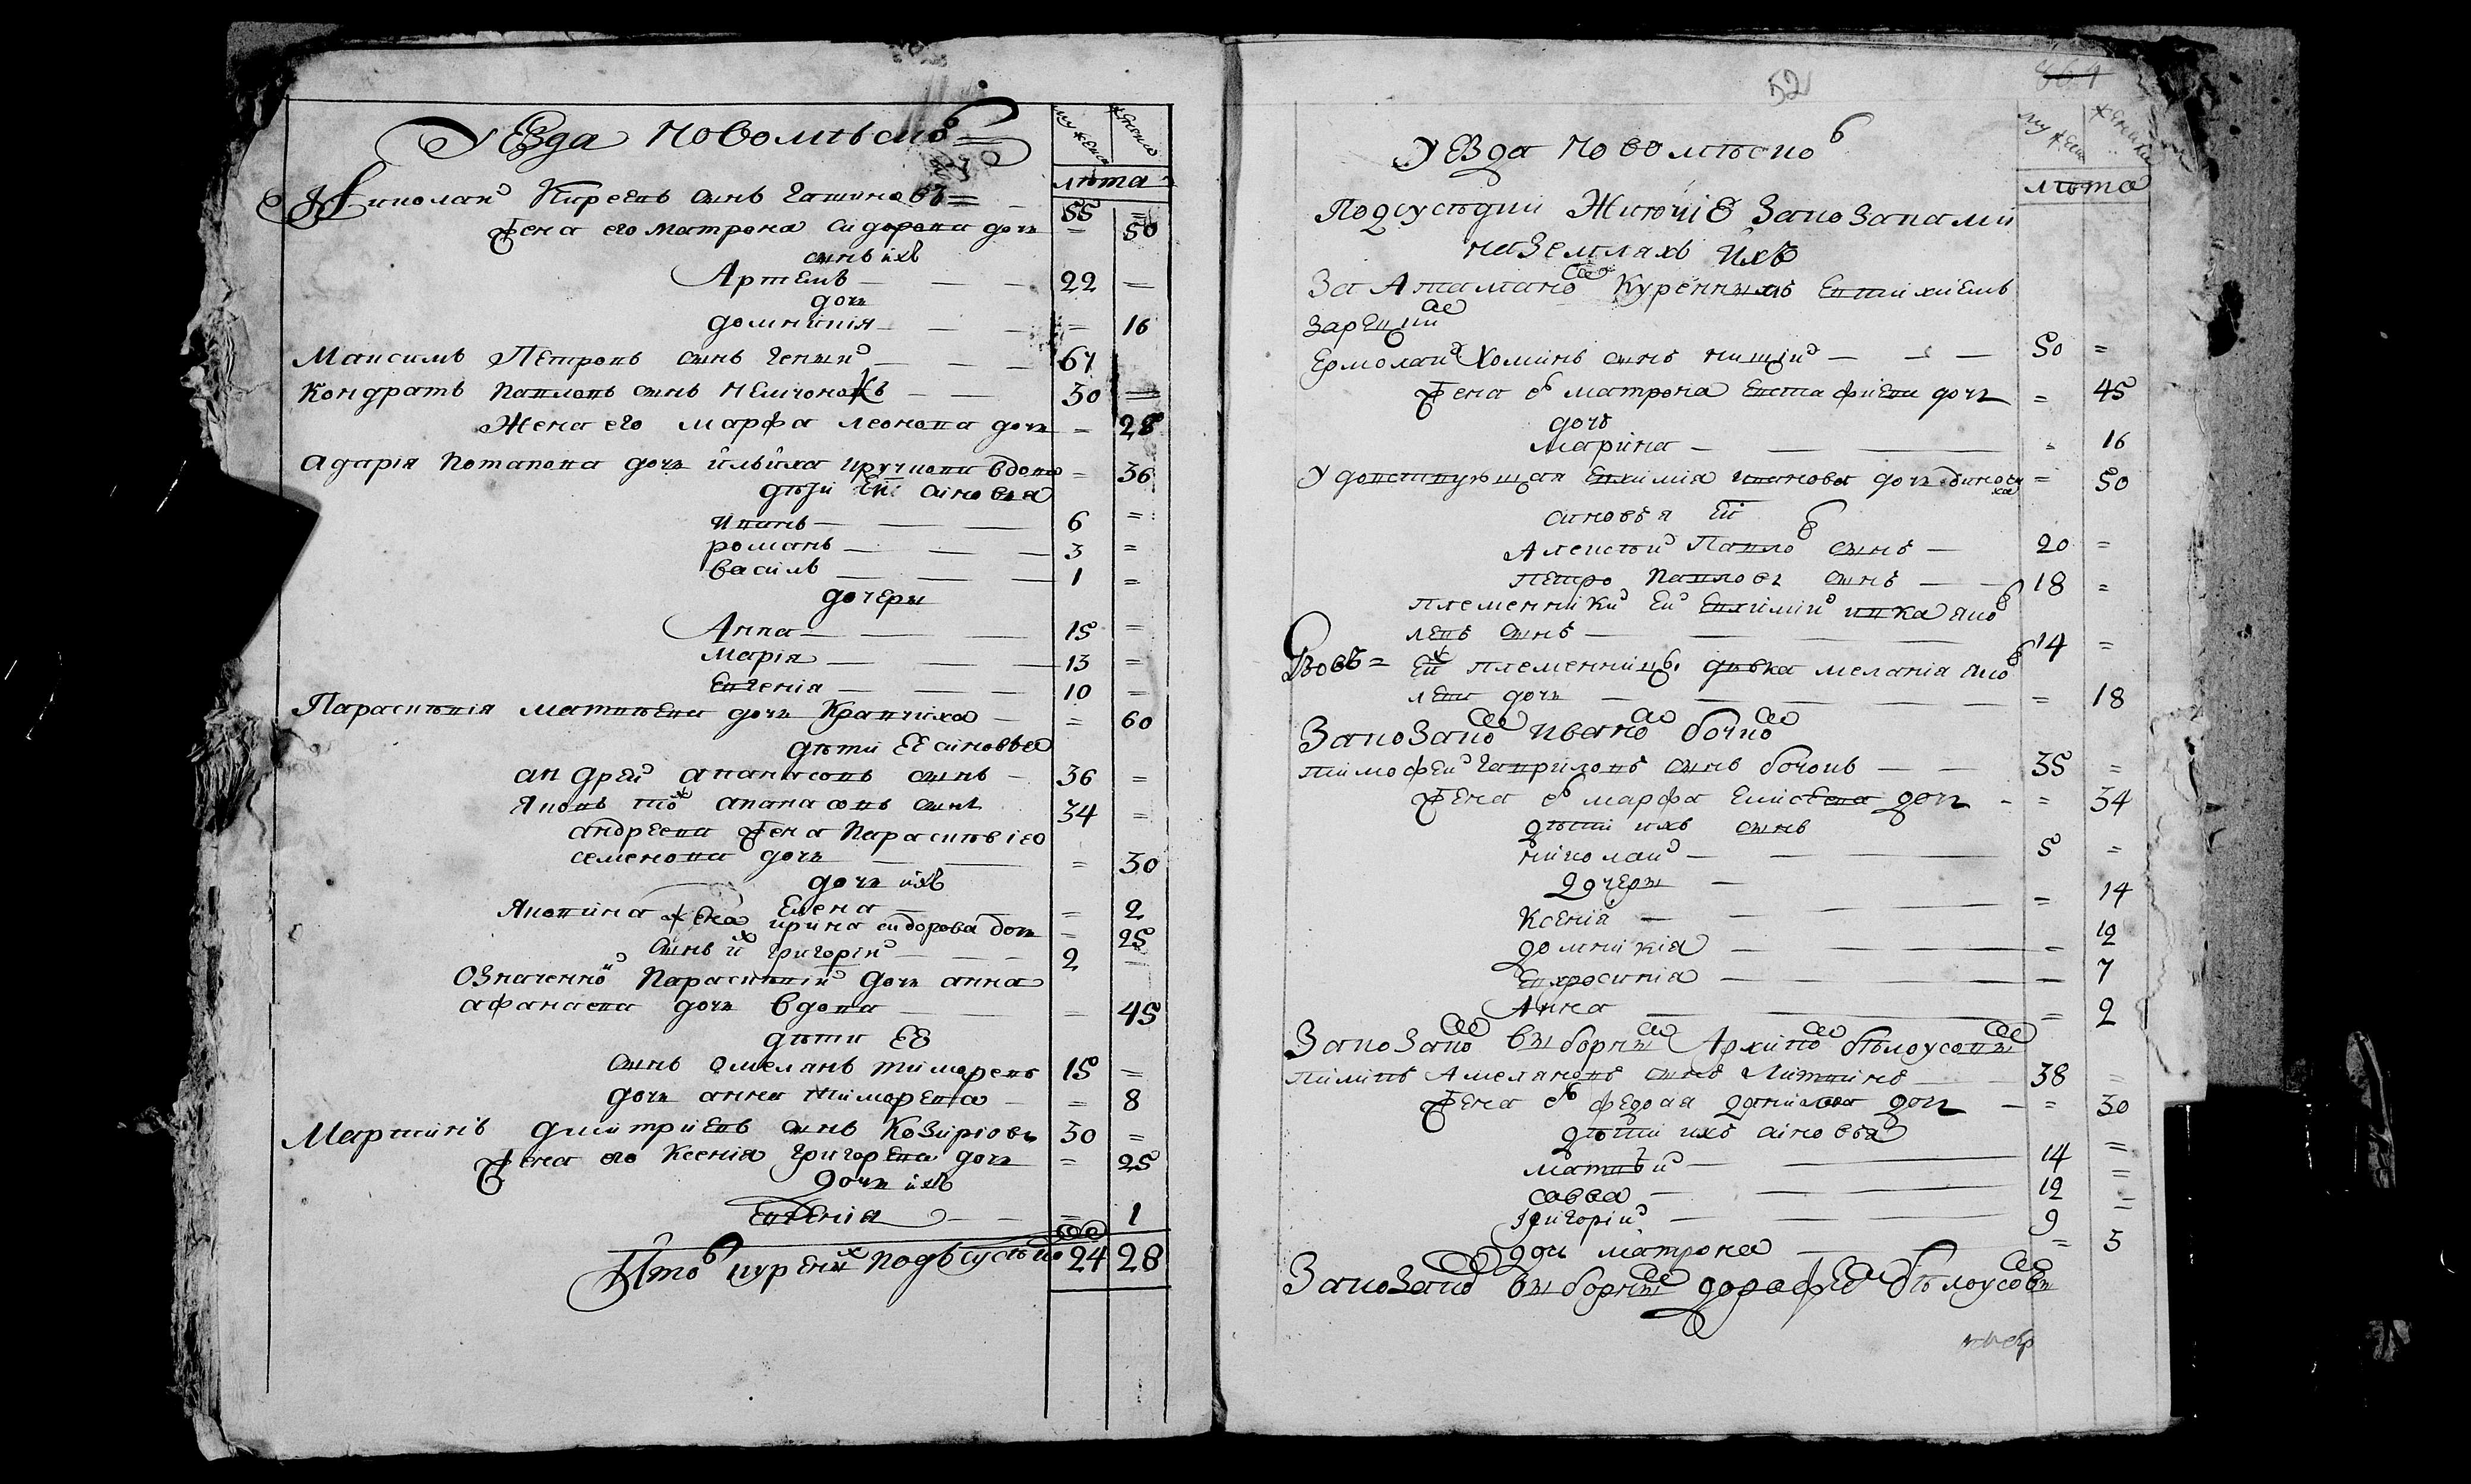 Уезда Новомлѣско
мужеска
женска
лѣта
Николай Киреевъ синъ Гашиновъ = 55 =
Жена его Матрона Сидорова дочъ = 50
синъ ихъ
Артемъ — — — 22 —
дочъ
Домникія — — — = 16
Максимъ Петровъ синъ — — 67
Кондратъ Павловъ синъ — — 30 =
Жена его Марфа Леонова дочъ = 28
Дарія Потапова дочъ вдова = 36
дѣти ей синовья
Иванъ — — — 6 =
Романъ — — — 3 =
Василь — — — 1 =
дочеры
Анна — — — 15 =
Марія — — — 13 =
Евгенія — — — 10 =
Парасковія Матвѣева дочъ Кравчиха — = 60
дѣти ее синовья
Андрей Апанасовъ синъ — 36 =
Яковъ тож Апанасовъ синъ 34 =
Андреева жена Парасковія
Семенова дочъ — — = 30
дочъ ихъ
Елена — — = 2
Яковина жена Ирина Сидорова дочъ = 25
синъ их Григорій — — 2 =
Означенной Парасковіи дочъ Анна
Афанасева дочъ вдова — — = 45
дѣти ее
синъ Омелянъ Тимофеевъ 15 =
дочъ Анна Тимофеева — = 8
Мартинъ Дмитриевъ синъ Козиріовъ 30 =
Жена его Ксенія Григорева дочъ = 25
дочъ ихъ
Евгенія — — = 1
Итого курених подсусѣдко 24 28
52
мужеска
женска
Уезда Новомлѣского
лѣта
Подсусѣдки Житючіе за козаками
на земляхъ ихъ
За Атаманом Куреннымъ Евтихиемъ
Зарецким
Ермолай Хоминъ синъ Нищій — — — 50 =
Жена его Матрона Евстафиева дочъ = 45
дочъ
Марина — — = 16
Удовствующая Евхимія Иванова дочъ = 50
синовья ей
Алексѣй Павлов синъ — 20 =
Петро Павловъ синъ — — 18 =
племенникъ ей Евхиміи Ивка Яков
левъ синъ — — — 14 =
Ей ж племенница дѣвка Меланія Яков
лева дочъ — — — = 18
За козаком Иваном Бочком
Тимофей Гавриловъ синъ Бочокъ — — 35 =
Жена его Марфа дочъ - = 34
дѣти ихъ синъ
Николай — — — 5 =
дочеры —
Ксенія — — — = 14
Домникія — — = 12
Евхросинія — — — 7
Анна — — = 2
За козаком выборным Архипом Бѣлоусовым
Пилипъ Амеляновъ синъ Литвинъ — 38 =
Жена его Федося Данилова дочъ — = 30
дѣти ихъ синовья =
Матвѣй — — 14 =
Савва — — 12 =
Григорій — — 9
дочъ Матрона — = 5
За козаком выборным Дорофеем Бѣлоусовъ